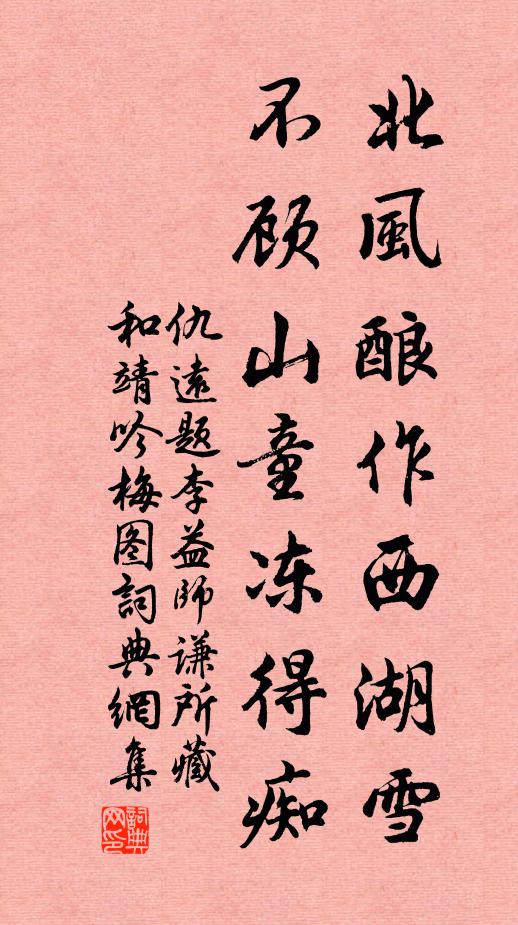 北風酿作西湖雪
不顾山童冻得痴
仇遠题李益師谦所藏
和靖吟梅图詞典網集
詞典網印